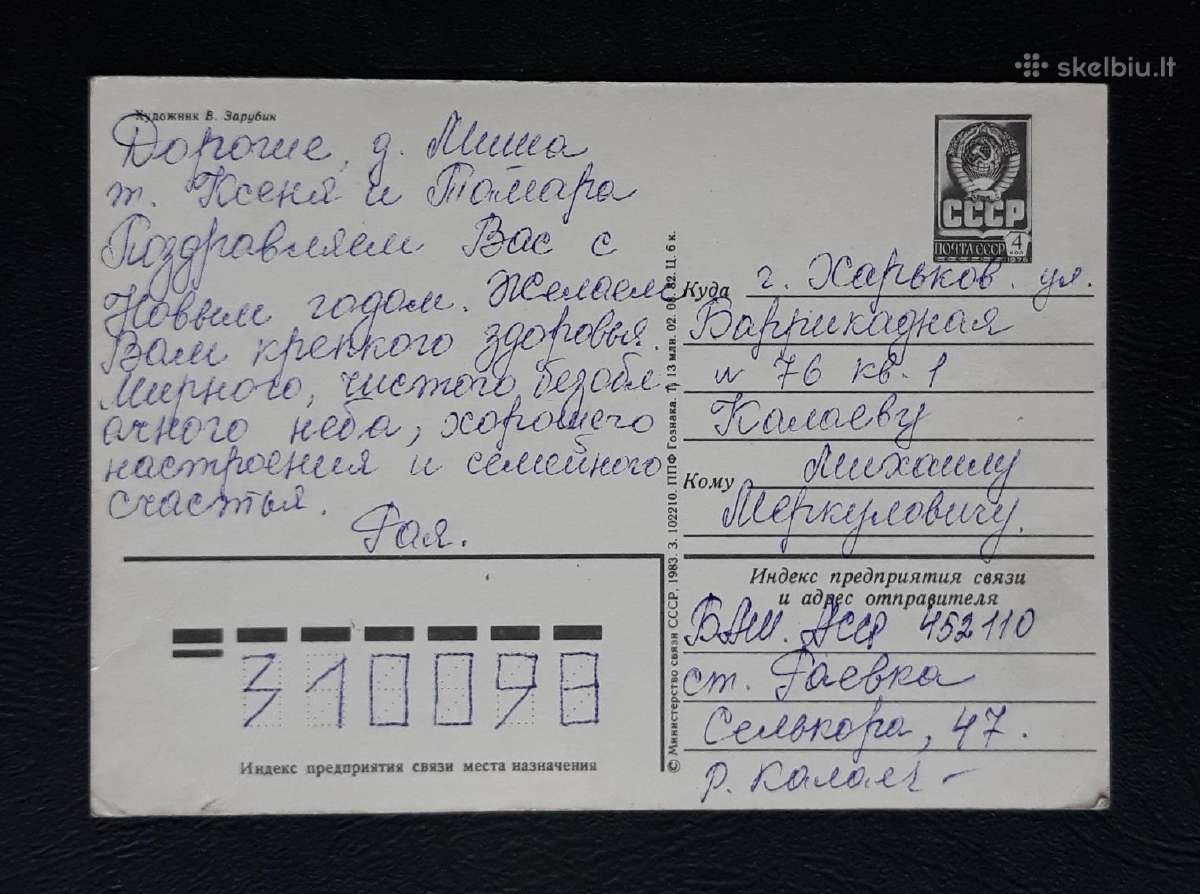 skelbiu.lt
Художник В. Зарубин
Дорогие, д. Миша
т. Ксеня и Тамара
Поздравляем Вас с
Новым годом. Желаем
Вам крепкого здоровья.
Мирного, чистого безобл
ачного неба, хорошего
настроения и семейного
счастья.
Рая.
СССР
ПОЧТА СССР 4
КОП
1976
Куда г. Харьков. ул.
Баррикадная
76 кв. 1
Калаеву
Кому Михаилу
Меркуловичу.
Индекс предприятия связи
и адрес отправителя
БАШ. АССР 452110
ст. Раевка
Селькора, 47.
р. Калаен
310098
Индекс предприятия связи места назначения
© Министерство связи СССР, 1983. З. 102210. ППФ Гознака. Т. 13 млн. 02. 08. 82. Ц. 6 к.